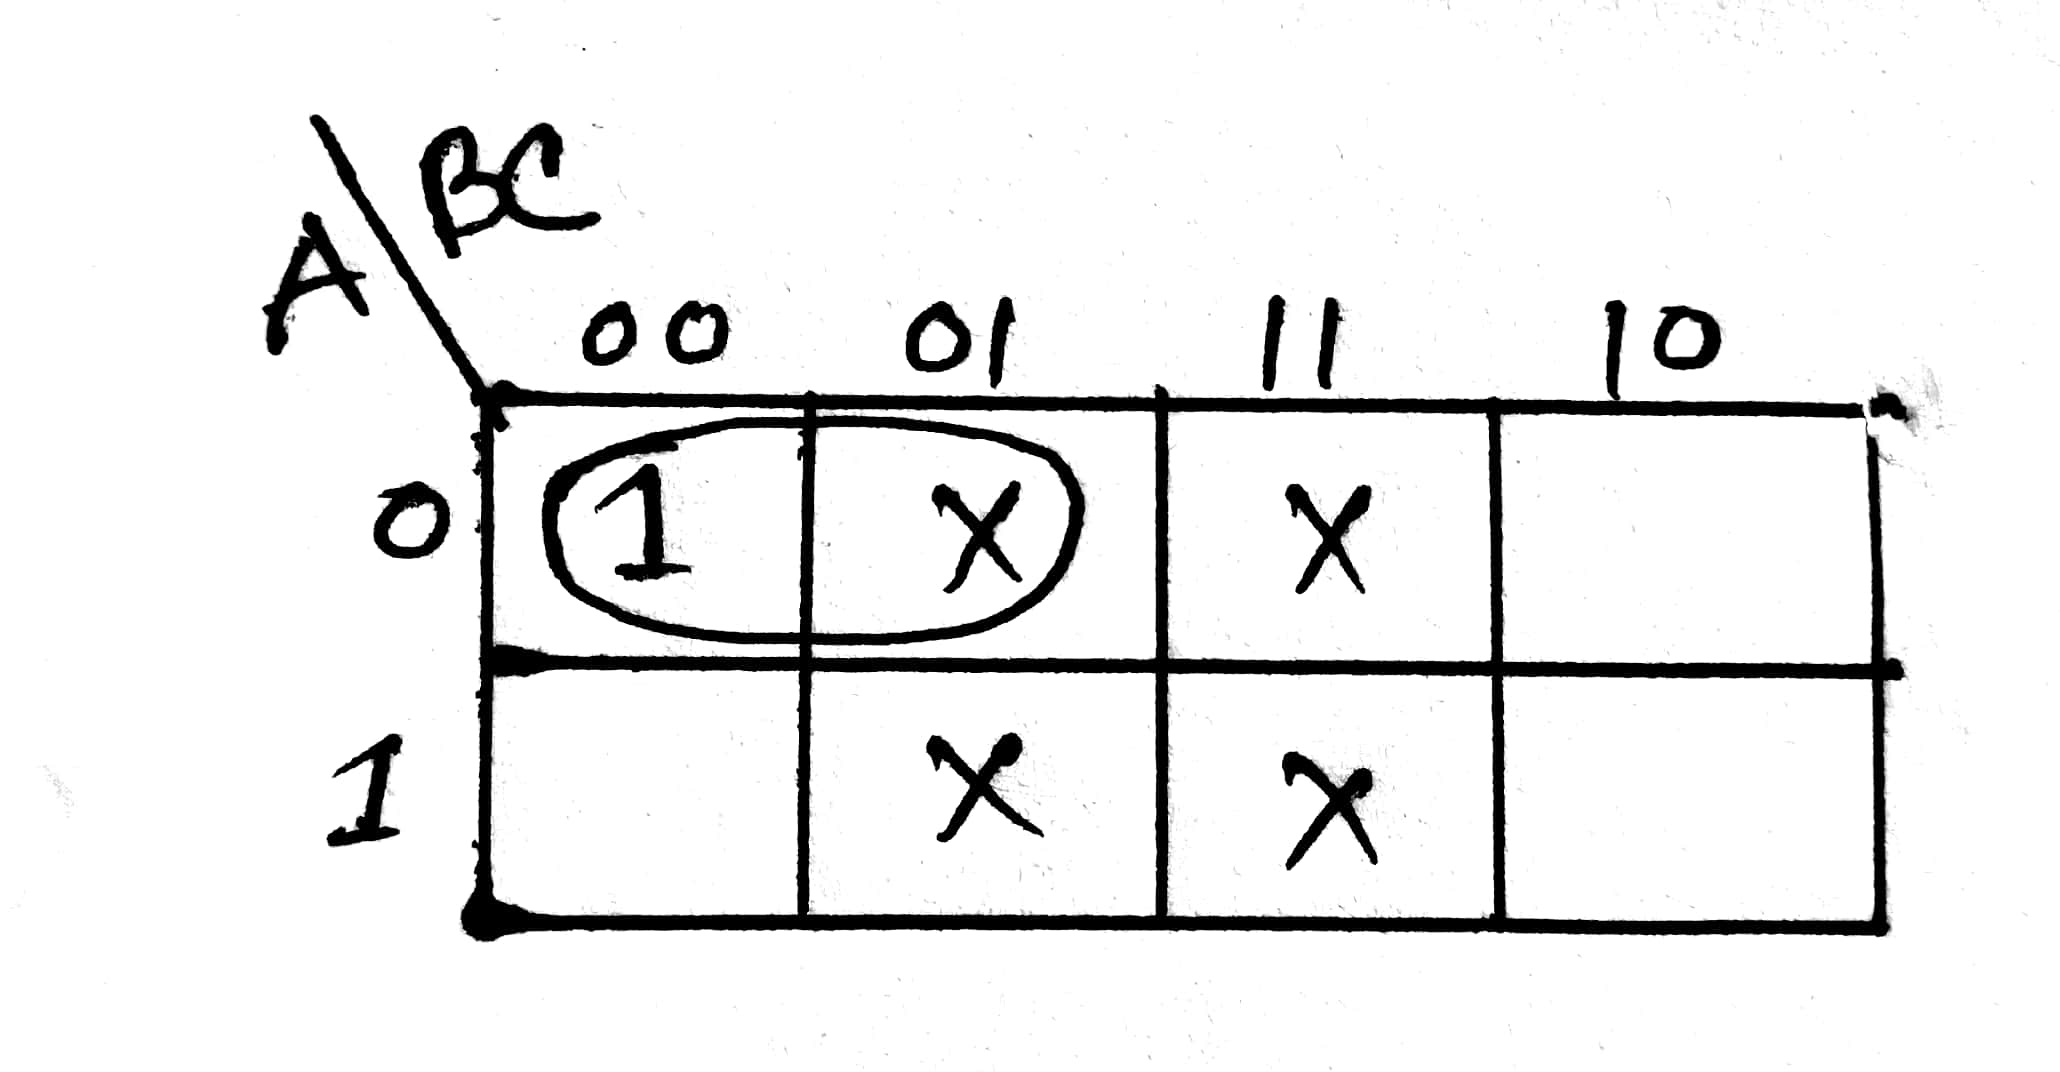 A\BC
00 01 11 10
0 1 X X
1 X X